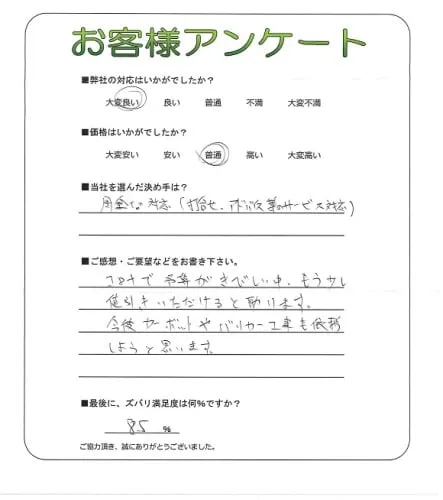 お客様アンケート
■弊社の対応はいかがでしたか?
大変良い 良い 普通 不満 大変不満
■価格はいかがでしたか?
大変安い 安い 普通 高い 大変高い
■当社を選んだ決め手は?
対応(打合せ、 のサービス対応)
■ご感想・ご要望などをお書き下さい。
コロナで予算がきびしい中、もう少し
値引きいただけると助ります。
今後カーポットやバリカー工事も依頼
しようと思います
■最後に、ズバリ満足度は何%ですか?
85 %
ご協力頂き、誠にありがとうございました。